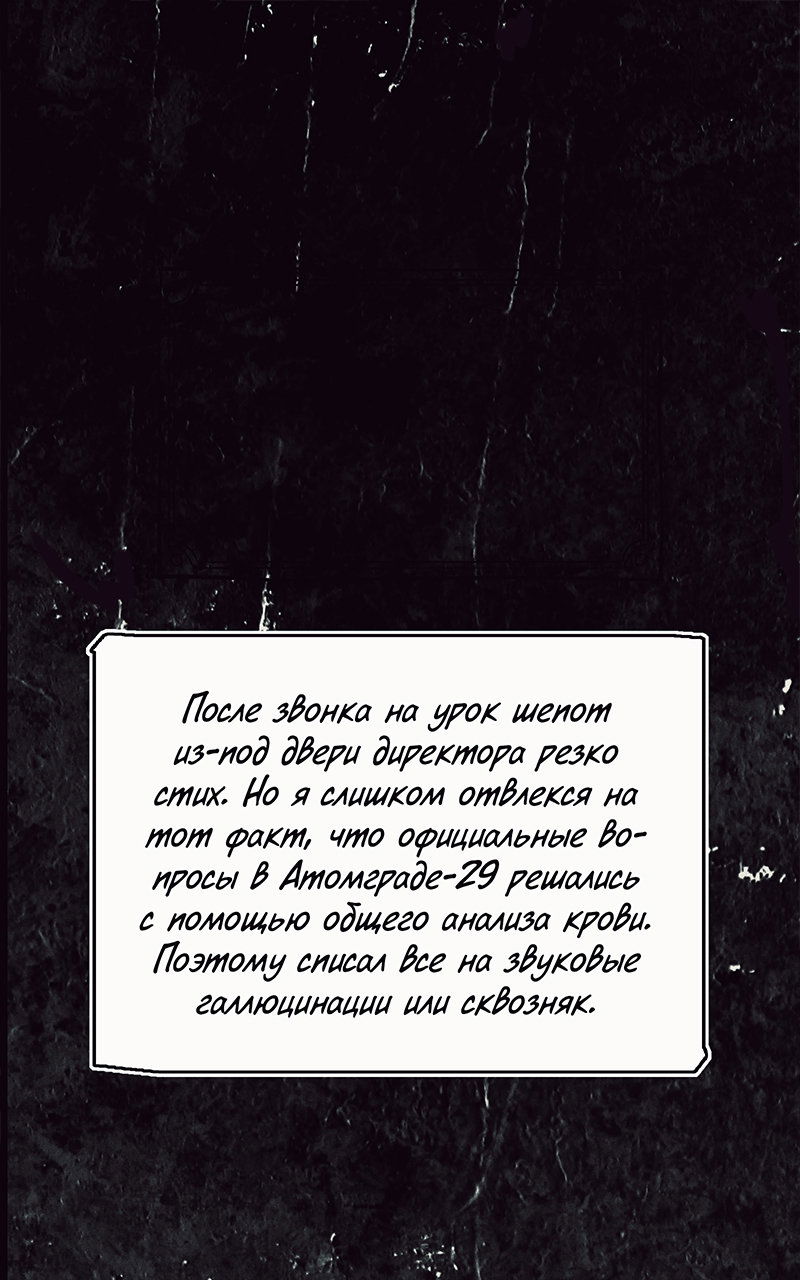 После звонка на урок шепот
из-под двери директора резко
стих. Но я слишком отвлекся на
тот факт, что официальные во-
просы в Атомграде-29 решались
с помощью общего анализа крови.
Поэтому списал все на звуковые
галлюцинации или сквозняк.